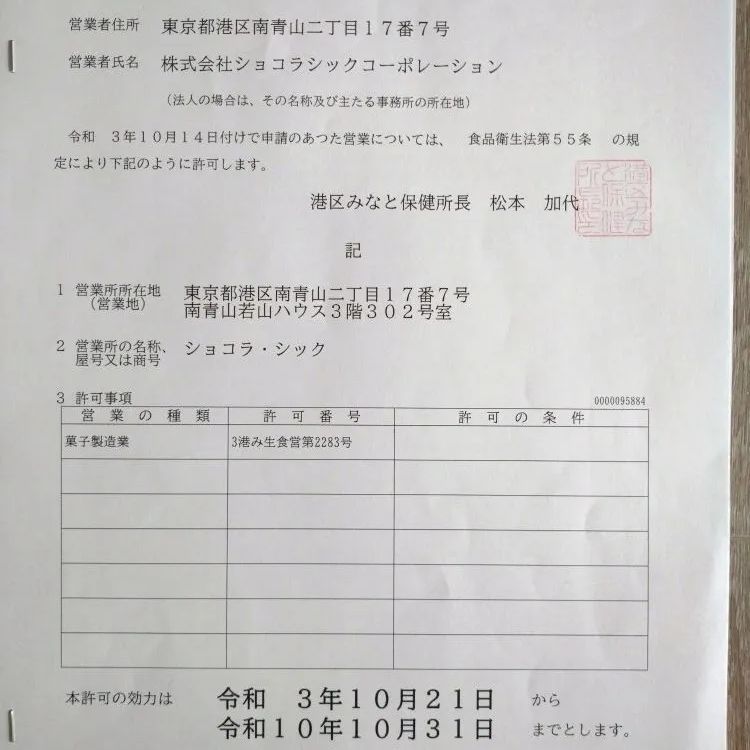 営業者住所 東京都港区南青山二丁目１７番７号
営業者氏名 株式会社ショコラシックコーポレーション
（法人の場合は、その名称及び主たる事務所の所在地）
令和 ３年１０月１４日付けで申請のあつた営業については、 食品衛生法第５５条 の規
定により下記のように許可します。
港区みなと保健所長 松本 加代
記
1 営業所所在地 東京都港区南青山二丁目１７番７号
（営業地） 南青山若山ハウス３階３０２号室
2 営業所の名称、 ショコラ・シック
屋号又は商号
3 許可事項 0000095884
営業の種類 許可番号 許可の条件
菓子製造業 3港み生食営第2283号
本許可の効力は 令和 ３年１０月２１日 から
令和１０年１０月３１日 までとします。